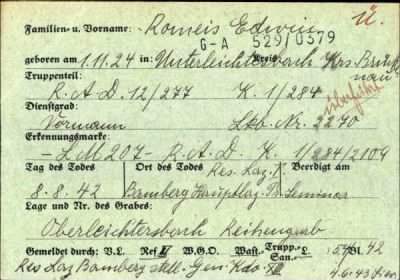 Ü.
Familien- u. Vorname: Romeis Edwin
G-A 529/0379
geboren am 1.11.24 in: Unterleichtersbach Kreis Krs. Brückenau
Truppenteil:
R.A.D. 12/277 K. 1/284
Dienstgrad:
Vormann Lkb. Nr. 2270
Erkennungsmarke:
-L.M 207- R.A.D. K. 1/284/2109
Tag des Todes Ort des Todes Res. Laz. I. Beerdigt am
8.8.42 Bamberg Hauptlaz. Seminar
Lage und Nr. des Grabes:
Oberleichtersbach Reihengrab
Gemeldet durch: V.L. Ref VI W.G.O. Wast.-Trupp.-L. San.- Bl. 42
Res Laz Bamberg stell. Gen. Kdo XIII 4.6.43